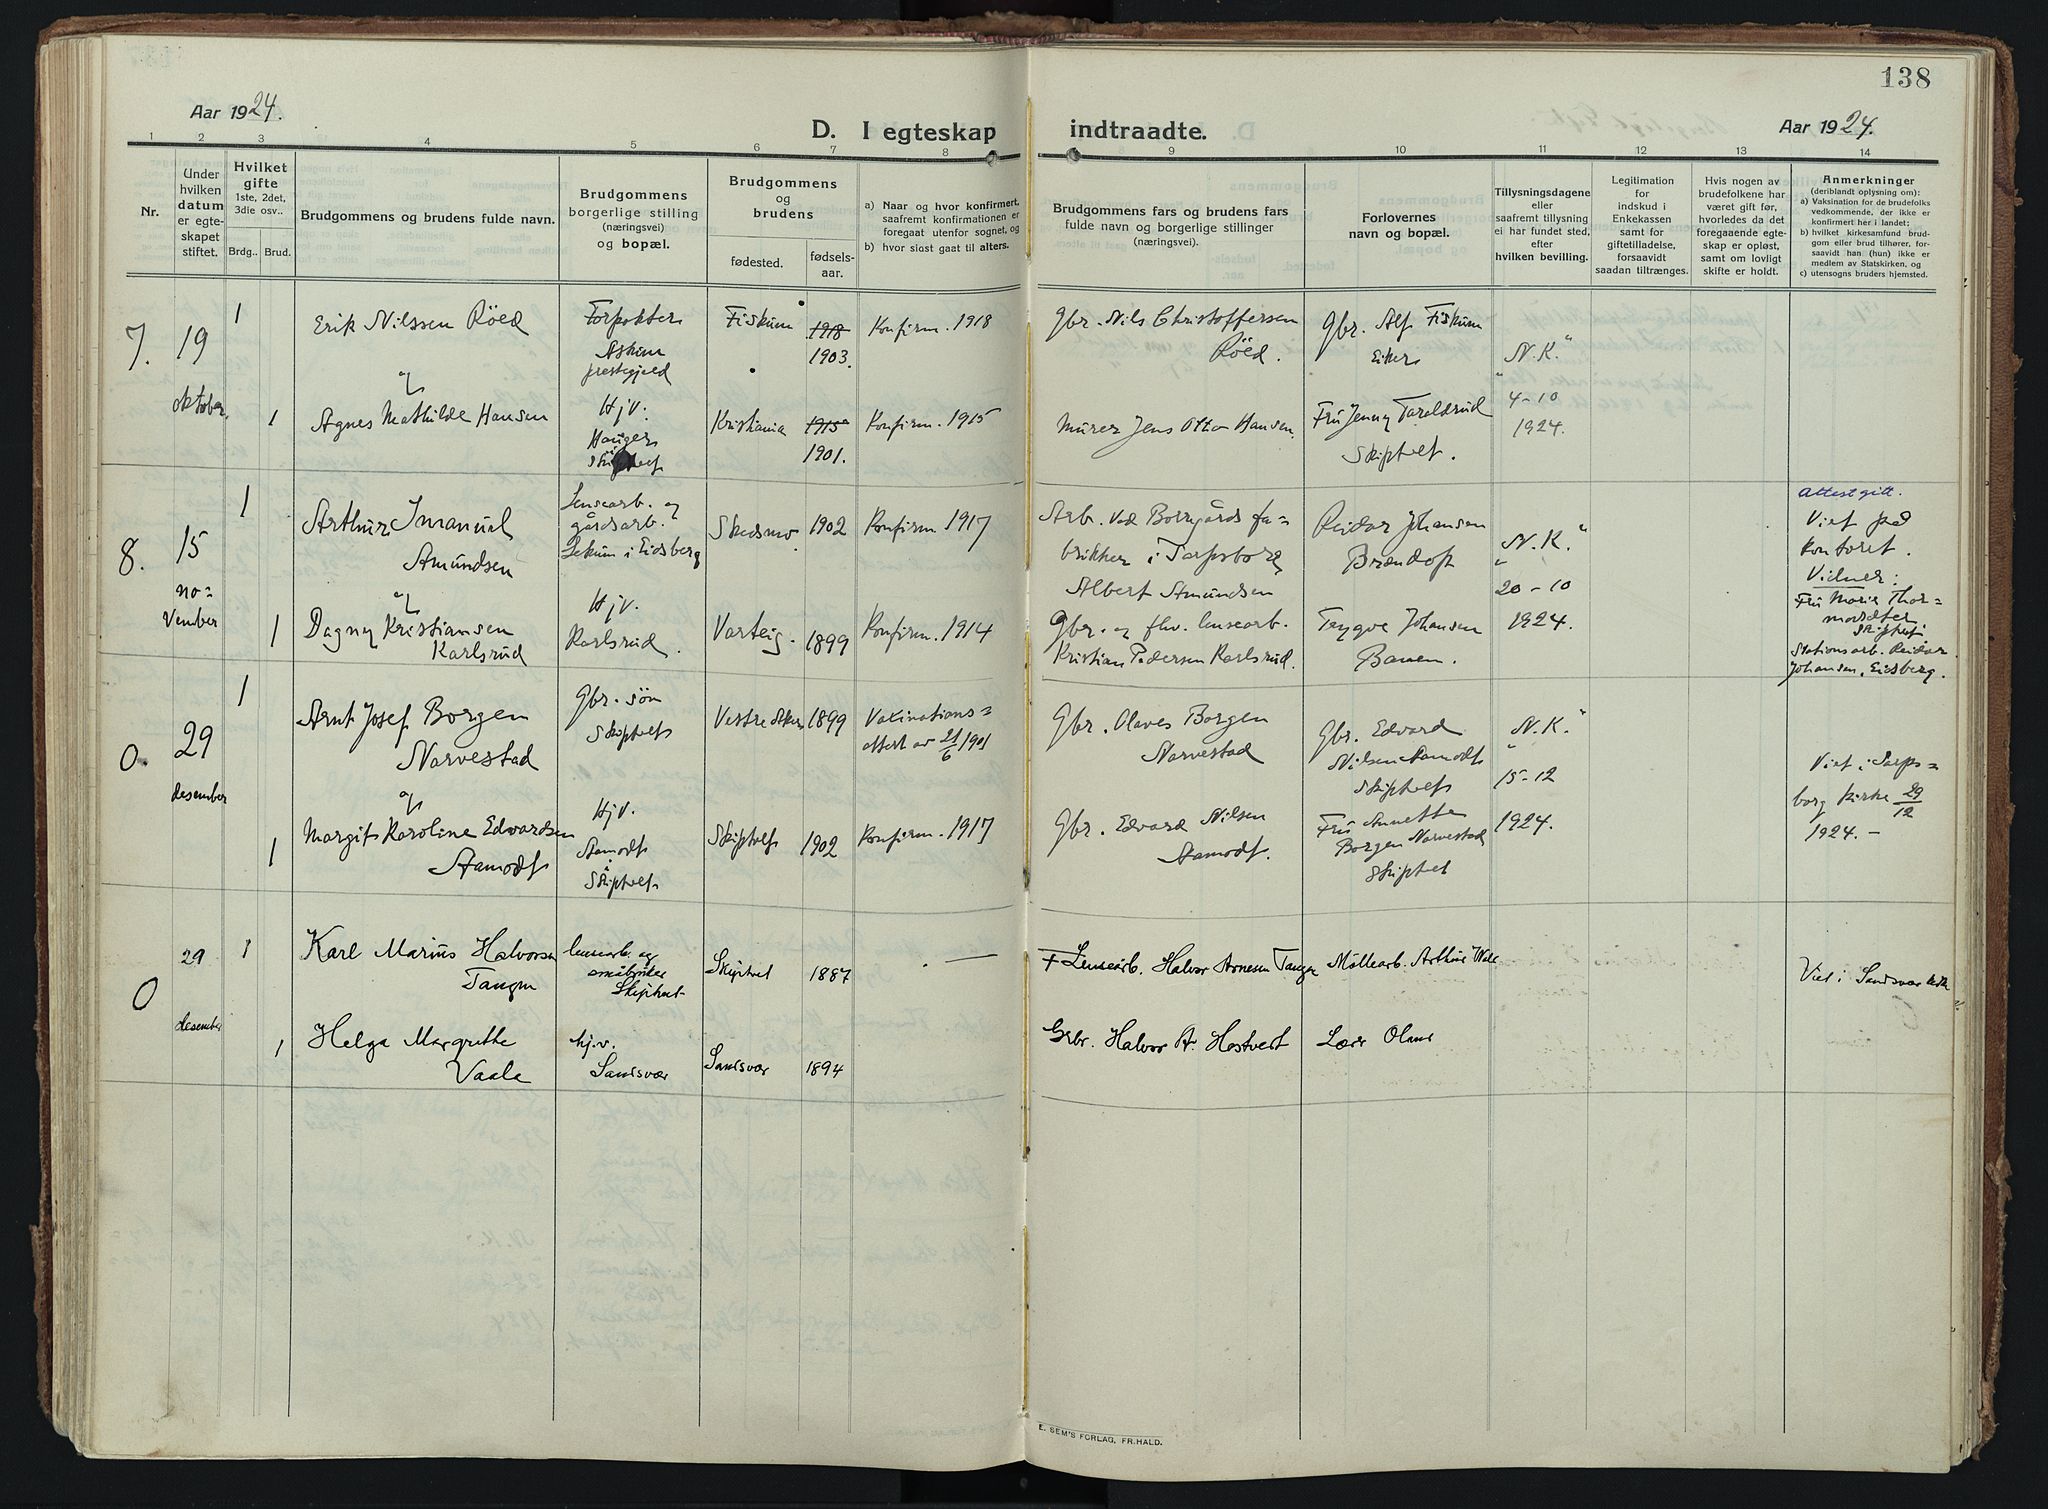 138
Aar 1924.
D. I egteskap indtraadte.
Aar 1924.
1 2 3 4 5 6 7 8 9 10 11 12 13 14
Nr.
Under
hvilken
datum
er egte-
skapet
stiftet.
Hvilket
gifte
1ste, 2det,
3die osv..
Brdg.. Brud.
Brudgommens og brudens fulde navn.
Brudgommens
borgerlige stilling
(næringsvei)
og bopæl.
Brudgommens
og
brudens
fødested.
fødsels-
aar.
a) Naar og hvor konfirmert,
saafremt konfirmationen er
foregaat utenfor sognet, og
b) hvor sidst gaat til alters.
Brudgommens fars og brudens fars
fulde navn og borgerlige stillinger
(næringsvei).
Forlovernes
navn og bopæl.
Tillysningsdagene
eller
saafremt tillysning
ei har fundet sted,
efter
hvilken bevilling.
Legitimation
for
indskud i
Enkekassen
samt for
giftetilladelse,
forsaavidt
saadan tiltrænges.
Hvis nogen av
brudefolkene har
været gift før,
hvorledes da det
foregaaende egte-
skap er opløst,
samt om lovligt
skifte er holdt.
Anmerkninger
(deriblandt oplysning om):
a) Vaksination for de brudefolks
vedkommende, der ikke er
konfirmert her i landet:
b) hvilket kirkesamfund brud-
gom eller brud tilhører, for-
saavidt han (hun) ikke er
medlem av Statskirken, og
c) utensogns bruders hjemsted.
7.
19
oktober
1
1
Erik Nilssen Röed
og
Agnes Mathilde Hansen
Askim
prestegjeld
Hjv.
Fiskum
Kristiania
1918
1903.
1915
1901.
Konfirm. 1918
Konfirm. 1915
Gbr. Nils Christoffersen
Röed.
Murer Jens Otto Hansen.
Gbr. Alf Fiskum
Eiker
Fru Jenny Taraldrud
Skiptvet.
"N.K."
4-10
1924.
8.
15
no=
vember
1
1
Arthur Imanuel
Amundsen
og
Dagny Kristiansen
Karlsrud
Lensearb. og
gårdsarb.
Lekum i Eidsberg
Hjv.
Karlsrud.
Skedsmo
Varteig.
1902
1899
Konfirm. 1917
Konfirm. 1914
Arb. ved Borregårds fa=
brikker i Sarpsborg
Albert Amundsen
Gbr. og flv. lensearb.
Kristian Pedersen Karlsrud.
Reidar Johansen
Trygve Johansen
"N.K."
20-10
1924.
Attest gitt.
Viet på
kontoret.
Vidner:
Fru Marie Thor=
Skiptvet.
Stationsarb. Reidar
Johansen, Eidsberg.
0.
29
desember
1
1
Arnt Josef Borgen
Narvestad
og
Margit Karoline Edvardsen
Aamodt
Gbr. søn
Skiptvet
Hjv.
Aamodt
i
Skiptvet
Vestre Aker
Skiptvet
1899
1902
Vaxinations=
attest av 21/6 1901
Konfirm. 1917
Gbr. Olaves Borgen
Narvestad
Gbr. Edvard Nilsen
Aamodt.
Gbr. Edvard
Nilsen Aamodt
Skiptvet
Fru Annette
Borgen Narvestad
Skiptvet
"N.K."
15-12
1924.
Viet i Sarps=
borg kirke 29/12
1924. -
0
29
desember
1
1
Karl Marius Halvorsen
Tangen
Helga Margrethe
Vaala
lensearb. og
småbruker
Skiptvet
hj.v.
Sandsvær
Skiptvet
Sandsvær
1887
1894
. —
† Lensearb. Halvor Arnesen Tangen
Gbr. Halvor A. Hostvedt
Møllearb. Arthur
Lærer
Viet i Sandsvær kirke
E. SEM'S FORLAG, FR.HALD.